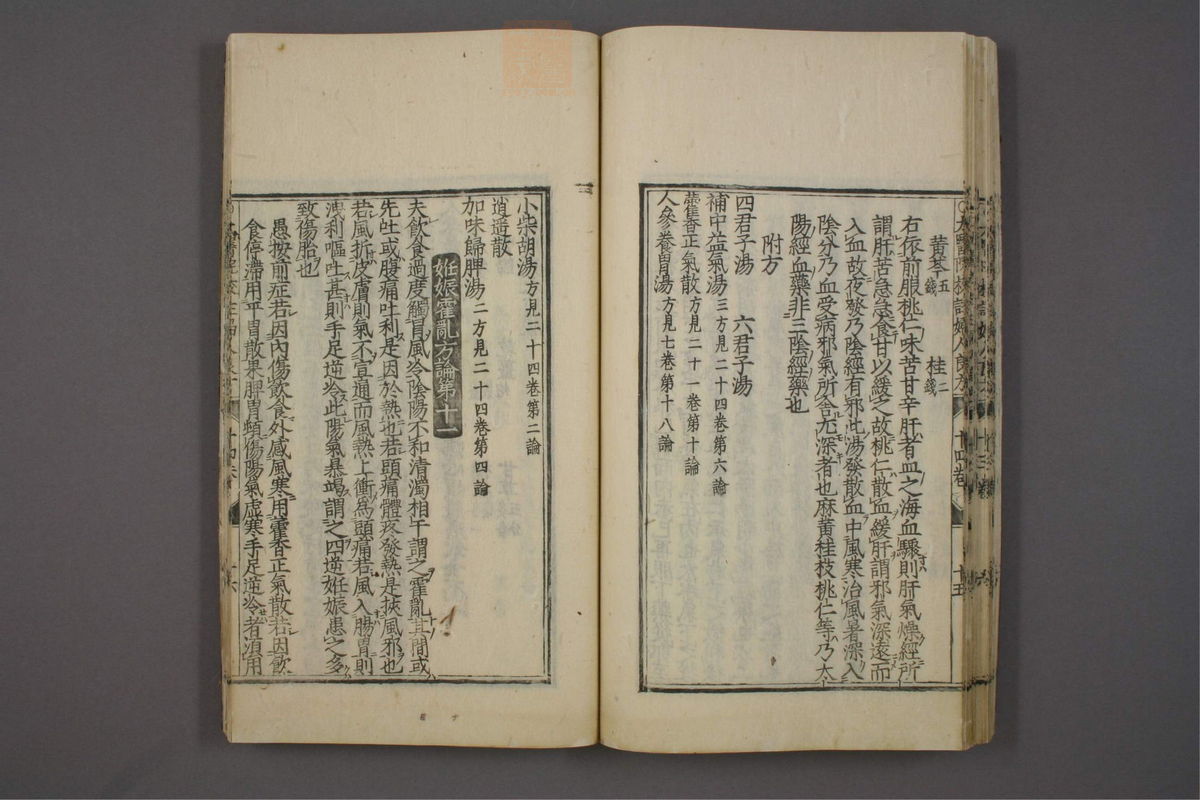 黄芩五錢　桂二錢
右依前服桃仁味苦甘辛肝者血之海血驟則肝氣燥經所
謂肝苦急急食甘以緩之故桃仁散血緩肝謂邪氣深遠而
入血故夜發乃陰經有邪此湯發散血中風寒治風暑深入
陰分乃血受病邪氣所舍尤深者也麻黄桂枝桃仁等乃太
陽經血藥非三陰經藥也
附方
四君子湯　六君子湯
補中益氣湯三方見二十四卷第六論
藿香正氣散方見二十一卷第十論
人參養胃湯方見七卷第十八論
小柴胡湯方見二十四卷第二論
逍遥散
加味歸脾湯二方見二十四卷第四論
妊娠霍亂方論第十一
夫飲食過度觸冒風冷陰陽不和清濁相干謂之霍亂其間或
先吐或腹痛吐利是因於熱也若頭痛體疼發熱是挾風邪也
若風折皮膚則氣不宣通而風熱上衝爲頭痛若風入腸胃則
洩利嘔吐甚則手足逆冷此陽氣暴竭謂之四逆妊娠患之多
致傷胎也
愚按前症若因内傷飲食外感風寒用藿香正氣散若因飲
食停滯用平胃散果脾胃頻傷陽氣虚寒手足逆冷者須用